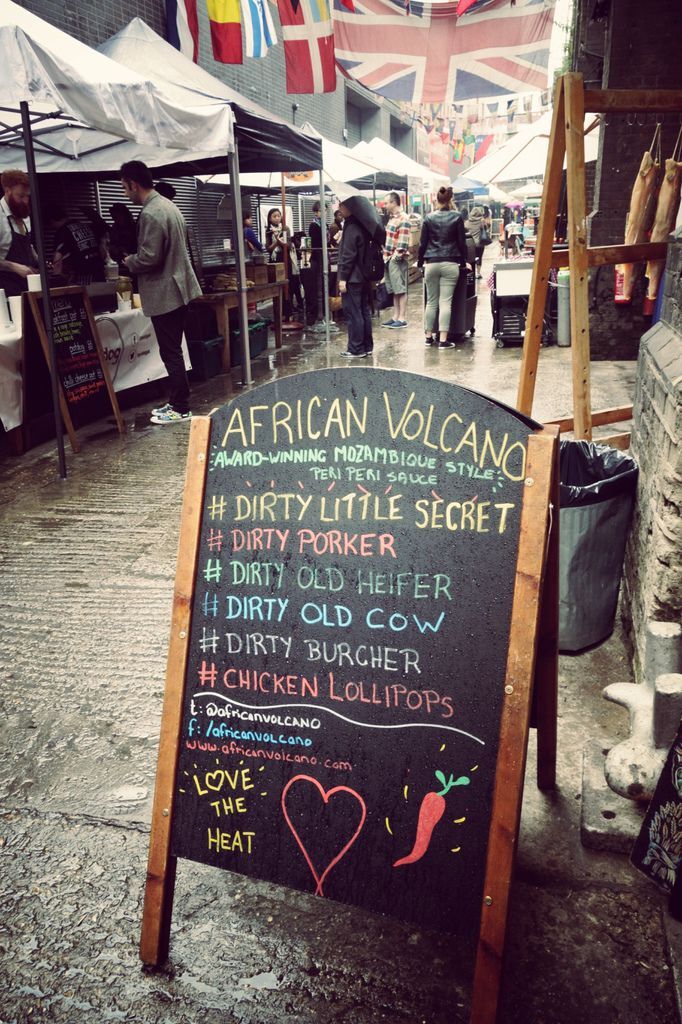 AFRICAN VOLCANO
AWARD-WINNING MOZAMBIQUE STYLE
PERI PERI SAUCE
# DIRTY LITTLE SECRET
# DIRTY PORKER
# DIRTY OLD HEIFER
# DIRTY OLD COW
# DIRTY BURCHER
# CHICKEN LOLLIPOPS
t: @africanvolcano
f: /africanvolcano
www.africanvolcano.com
LOVE
THE
HEAT
dog